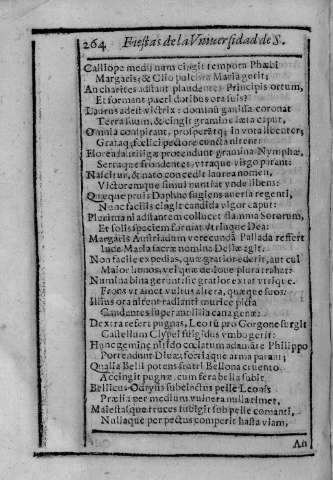 264 Fiestas de la Vniuersidad de S.
Calliope medij num cingit tempora Phœbi
Margaris; & Clio pulchra Maria gerit;
An charites adstant plaudentes Principis ortum,
Et formant pueri doribus ora suis?
Laurus adest victrix: dominū gauisa coronat
Terra suum, & cingit gramine læta caput,
Omnia conspirant, prosperātq; in vota libenter;
Grataq; fœlici pectore cuncta nitent:
Florea fastiligæ protendunt gramina Nymphæ,
Sertaque frondentes; vtraque virgo parant:
Nascitur, & nato concedit laurea nomen,
Victoremque simul nuntiat vnde libens:
Quæque prius Daphne fugiens auersa regenti,
Nunc facilis cingit candida vigor caput:
Plurima ni adstantem collucet flamma Sororum,
Et solis speciem format vtrique Dea:
Margaris Austriadum verecundā Pallada reffert
Inde Maria sacræ nomina
Non facile expedias, quæ gratior ederit, aut cui
Maior honos, vel quæ de Ioue plura trahat:
Numina bina gerunt: sic gratior extat vtrique.
Frons vt amet vultus altera, quæque suos.
Illius ora nitent radianti murice picta
Candentes super lana genæ:
Dextra refert pugnas, Leo tū pro Gorgone surgit
Castellum Clypei fulgidus vmbo gerit:
Hunc gemine nisido cœlatum adamāte Philippo
Portendunt Diuæ, forsique arma parant;
Qualia Belli potens fratri Bellona cruento
Accingit pugnæ, cum fera bella subit.
Bellicus Odrysis subcinctus pelle Leonis
Prælia per medium vulnera nulla timet,
Maiestasque truces subigit sub pelle comanti,
Nullaque per pectus comperit hasta viam,
An